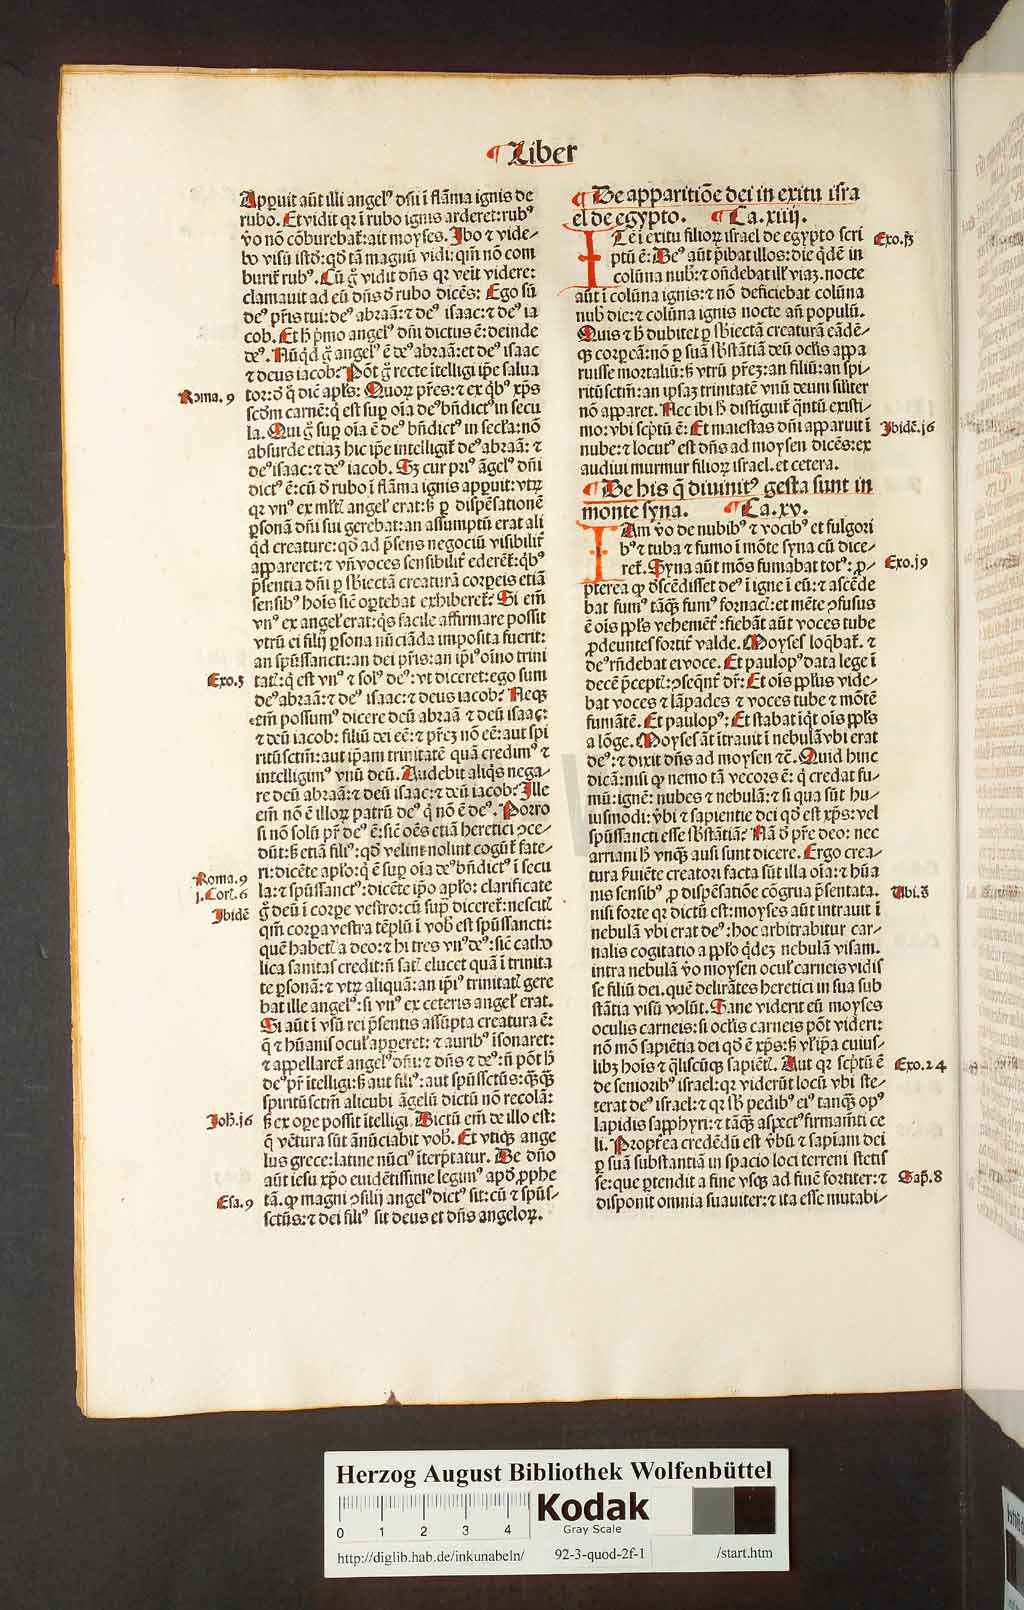 ¶ Liber
Apꝑuit aūt illi angelꝰ dn̄i ī flāma ignis de
rubo. Et vidit qꝛ ī rubo ignis arderet: rubꝰ
v̄o nō cōburebat᷑: ait moyses. Ibo ⁊ vide⸗
bo visū istō: qd̓ tā magnū vidi: qm̄ nō com
burit᷑ rubꝰ. Cū g̊ vidit dn̄s qꝛ veīt videre:
clamauit ad eū dn̄s d̓ rubo dicēs: Ego sū
deꝰ pr̄is tui: deꝰ abraā: ⁊ deꝰ isaac: ⁊ deꝰ ia
cob. Et h̓ pͥmo angelꝰ dn̄i dictus ē: deinde
deꝰ. Nūqd̓ g̊ angelꝰ ē deꝰ abraā: et deꝰ isaac
⁊ deus iacob? Pōt g̊ recte ītelligi ip̄e salua
Roma. 9 tor: d̓ q̊ diē apl̓s: Quoꝝ pr̄es: ⁊ ex qͥbꝰ xp̄s
scd̓m carnē: q̇ est suꝑ oīa deꝰ bn̄dictꝰ in secu
la. Qui g̊ suꝑ oīa ē deꝰ bn̄dictꝰ in secl̓a: nō
absurde etiaꝫ hic ip̄e intelligit᷑ deꝰ abraā: ⁊
deꝰ isaac: ⁊ deꝰ iacob. Sꝫ cur pͥꝰ āgelꝰ dn̄i
dictꝰ ē: cū d̓ rubo ī flāma ignis apꝑuit: vtꝝ
qꝛ vnꝰ ex ml̓tꝭ angel᷑ erat: ſꝫ ꝑ dispēsationē
ꝑsonā dn̄i sui gerebat: an assumptū erat ali
qd̓ creature: qd̓ ad p̄sens negociū visibilit᷑
appareret: ⁊ vn̄ voces sensibilit᷑ ederēt᷑: qͥbꝰ
p̄sentia dn̄i ꝑ sb̓iectā creaturā corꝑeis etiā
sensibꝰ hoīs sic̄ oꝑtebat exhiberet᷑? Si em̄
vnꝰ ex angel᷑ erat: qͥs facile affirmare possit
vtrū ei filij ꝑsona nūciāda imposita fuerit:
an sp̄ussancti: an dei pr̄is: an ip̄iꝰ oīno trini
Exo. 3 tatꝭ: q̇ est vnꝰ ⁊ solꝰ deꝰ: vt diceret: ego sum
deꝰ abraā: ⁊ deꝰ isaac: ⁊ deus iacob? Neqꝫ
em̄ possumꝰ dicere deū abraā ⁊ deū isaac:
⁊ deū iacob: filiū dei eē: ⁊ pr̄eꝫ nō eē: aut spi
ritūsctm̄: aut ip̄am trinitatē quā credimꝰ ⁊
intelligimꝰ vnū deū. Audebit aliqͥs nega⸗
re deū abraā: ⁊ deū isaac: ⁊ deū iacob? Ille
em̄ nō ē illoꝝ patrū deꝰ q̇ nō ē deꝰ. Porro
si nō solū pr̄ deꝰ ē: sic̄ oēs etiā heretici ꝯce⸗
dūt: ſꝫ etiā filiꝰ: qd̓ velint nolint cogūt᷑ fate⸗
Roma. 9 ri: dicēte apl̓o: q̇ ē suꝑ oīa deꝰ bn̄dictꝰ ī secu
j. Cor. 6 la: ⁊ sp̄ussanctꝰ: dicēte ip̄o apl̓o: clarificate
Ibidē g̊ deū ī corꝑe vestro: cū supͣ diceret᷑: nescitꝭ
qm̄ corꝑa vestra tēplū ī vob̓ est sp̄ussancti:
quē habetꝭ a deo: ⁊ hi tres vnꝰ deꝰ: sic̄ catho
lica sanitas credit: n̄ satꝭ elucet quā ī trinita
te ꝑsonā: ⁊ vtꝝ aliquā: an ip̄iꝰ trinitatꝭ gere
bat ille angelꝰ: si vnꝰ ex ceteris angel᷑ erat.
Si aūt ī vsū rei p̄sentis assūpta creatura ē:
q̄ ⁊ hūanis ocul᷑ apꝑeret: ⁊ auribꝰ īsonaret:
⁊ appellaret᷑ angelꝰ dn̄i: ⁊ dn̄s ⁊ deꝰ: n̄ pōt h̓
deꝰ pr̄ ītelligi: ſꝫ aut filiꝰ: aut sp̄ussctūs: qͣqͣꝫ
spiritūsctm̄ alicubi āgelū dictū nō recolā:
Joh̓. j6 ſꝫ ex oꝑe possit ītelligi. Dictū em̄ de illo est:
q̄ vētura sūt ānūciabit vob̓. Et vtiqꝫ ange
lus grece: latine nūciꝰ īterp̄tatur. De dn̄o
aūt iesu xp̄o euidētissime legimꝰ apd̓ ꝓphe
Esa. 9 tā. ꝙ magni ꝯsilij angelꝰ dictꝰ sit: cū ⁊ sp̄us⸗
sctūs: ⁊ dei filiꝰ sit deus et dn̄s angeloꝝ.
¶ De apparitiōe dei in exitu isra
el de egypto. ¶ Ca. xiiij.
ITē ī exitu filioꝝ israel de egypto scri Exo. j3
ptū ē: Deꝰ aūt p̄ibat illos: die qͥdē in
colūna nub̓: ⁊ on̄debat ill᷑ viaꝫ. nocte
aūt ī colūna ignis: ⁊ nō deficiebat colūna
nub̓ die: ⁊ colūna ignis nocte an̄ populū.
Quis ⁊ h̓ dubitet ꝑ sb̓iectā creaturā eādē⸗
qꝫ corꝑeā: nō ꝑ suā sb̓stātiā deū ocl̓is appa
ruisse mortaliū: ſꝫ vtrū pr̄eꝫ: an filiū: an spi⸗
ritūsctm̄: an ip̄saꝫ trinitatē vnū deum sil̓iter
nō apparet. Nec ibi h̓ distiguit᷑ qͣntū existi⸗
mo: vbi sc̓ptū ē: Et maiestas dn̄i apparuit ī Ibidē. j6
nube: ⁊ locutꝰ est dn̄s ad moysen dicēs: ex
audiui murmur filioꝝ israel. et cetera.
¶ De his q̄ diuinitꝰ gesta sunt in
monte syna. ¶ Ca. xv.
IAm v̄o de nubibꝰ ⁊ vocibꝰ et fulgori
bꝰ ⁊ tuba ⁊ fumo ī mōte syna cū dice⸗
ret᷑. Syna aūt mōs fumabat totꝰ: ꝓ⸗ Exo. j9
pterea ꝙ d̓scēdisset deꝰ ī igne ī eū: ⁊ ascēde
bat fumꝰ tāqͣꝫ fumꝰ fornacꝭ: et mēte ꝯfusus
ē oīs ppl̓s vehemēt᷑: fiebāt aūt voces tube
ꝓdeuntes fortit᷑ valde. Moyses loqͣbat᷑. ⁊
deꝰ rn̄debat ei voce. Et paulopꝰ data lege ī
decē p̄ceptꝭ: ꝯseqn̄t᷑ dr̄: Et oīs ppl̓us vide⸗
bat voces ⁊ lāpades ⁊ voces tube ⁊ mōtē
fumātē. Et paulopꝰ: Et stabat iqͥt oīs ppl̓s
a lōge. Moyses āt ītrauit ī nebulā vbi erat
deꝰ: ⁊ dixit dn̄s ad moysen ⁊c̄. Quid hinc
dicā: nisi ꝙ nemo tā vecors ē: q̇ credat fu⸗
mū: ignē: nubes ⁊ nebulā: ⁊ si qua sūt hu⸗
iusmodi: v̓bi ⁊ sapientie dei qd̓ est xp̄s: vel
sp̄ussancti esse sb̓stātiā? Nā d̓ pr̄e deo: nec
arriani h̓ vnqͣꝫ ausi sunt dicere. Ergo crea⸗
tura ẜuiēte creatori facta sūt illa oīa: ⁊ hūa
nis sensibꝰ ꝓ dispēsatiōe cōgrua p̄sentata. Vbi. s̄
nisi forte qꝛ dictū est: moyses aūt intrauit ī
nebulā vbi erat deꝰ: hoc arbitrabitur car⸗
nalis cogitatio a ppl̓o qͥdeꝫ nebulā visam.
intra nebulā v̄o moysen ocul᷑ carneis vidis
se filiū dei. quē delirātes heretici in sua sub
stātia visū volūt. Sane viderit eū moyses
oculis carneis: si ocl̓is carneis pōt videri:
nō mō sapiētia dei qd̓ ē xp̄s: ſꝫ vl̓ ip̄a cuius⸗
libꝫ hoīs ⁊ qͣliscūqꝫ sapiētꝭ. Aut qꝛ sc̓ptū ē Exo. 24
de seniorib̓ israel: qꝛ viderūt locū vbi ste⸗
terat deꝰ israel: ⁊ qꝛ sb̓ pedibꝰ eiꝰ tanqͣꝫ opꝰ
lapidis sapphyri: ⁊ tāqͣꝫ aspectꝰ firmamēti ce
li. Propt̓ea credēdū est v̓bū ⁊ sapiam dei
ꝑ suā substantiā in spacio loci terreni stetis
se: que ꝑtendit a fine vsqꝫ ad finē fortiter: ⁊ Sap̄. 8
disponit omnia suauiter: ⁊ ita esse mutabi⸗
Herzog August Bibliothek Wolfenbüttel
0 1 2 3 4
Kodak
Gray Scale
http://diglib.hab.de/inkunabeln/ 92-3-quod-2f-1 /start.htm